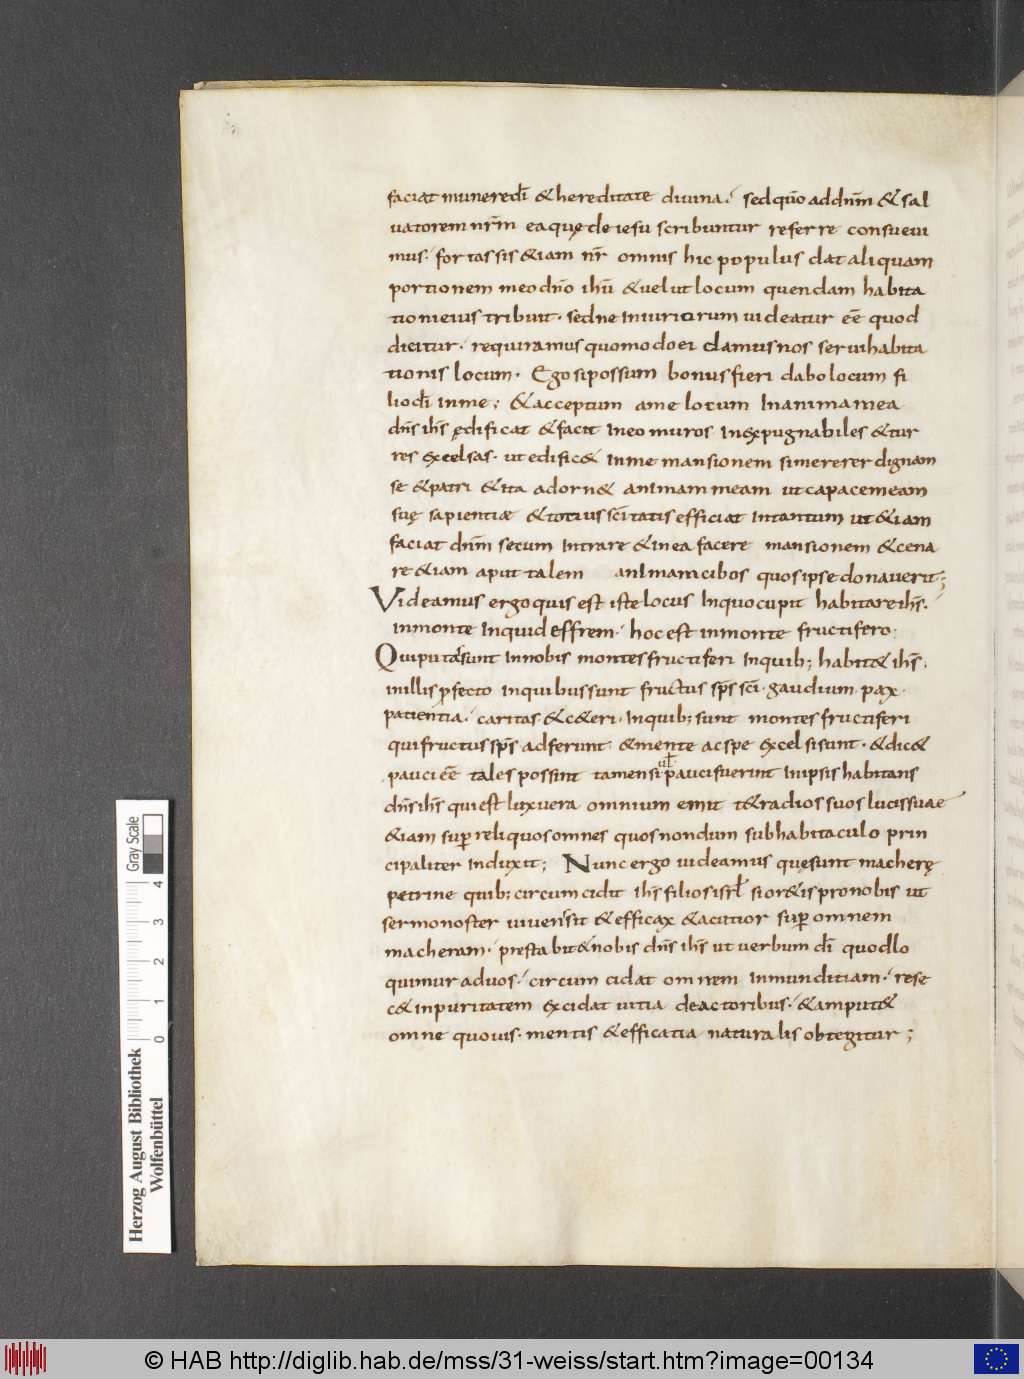 faciat munere dī & hereditate diuina; sed quō ad dn̄m & sal
uatorem nr̄m ea quę de iesu scribuntur referre consueui
mus. fortassis & iam nr̄ omnis hic populus dat aliquam
portionem meo dn̄o ihū & uelut locum quendam habita
tioni eius tribuit. sed ne iniuriarum uideatur eē quod
dicitur. requiramus quomodo ei damus nos serui habita
tionis locum. Ego si possum bonus fieri dabo locum fi
lio dī in me; & acceptum a me locum In anima mea
dn̄s ihs̄ ędificat & facit In eo muros Inexpugnabiles & tur
res excelsas. ut edific& In me mansionem si mererer dignam
se & patri & ita adorn& anImam meam ut capacem eam
suę sapientiæ & totius sc̄itatis efficiat Intantum ut &iam
faciat dn̄m secum Intrare & in ea facere mansionem & cena
re &iam aput talem anImam cibos quos ipse donauerit;
Videamus ergo quis est iste locus Inquo cupit habitare ihs̄.
in monte Inquid effrem. hoc est in monte fructifero.
Qui putas sunt In nobis montes fructiferi Inquib; habit& ihs̄.
in illis ꝓfecto Inquibus sunt fructus sp̄s sc̄i. gaudium. pax.
patientia. caritas & c&eri. Inquib; sunt montes fructiferi
qui fructus sp̄s adferunt & mente ac spe excelsi sunt. & dic&
ul
pauci eē tales possint tamen si pauci fuerint In ipsis habitans
dn̄s ihs̄ qui est lux uera omnium emit t& radios suos lucis suae
&iam suꝑ reliquos omnes quos nondum sub habitaculo prin
cipaliter Induxit; Nunc ergo uideamus quę sunt macherę
petrine quib; circumcidit ihs̄ filios isrl̄ si or&is pro nobis ut
sermo noster uiuens sit & efficax & acutior suꝑ omnem
macheram. prestabit & nobis dn̄s ihs̄ ut uerbum dī quod lo
quimur ad uos. circumcidat omnem Inmunditiam. rese
c& inpuritatem excidat uitia de actoribus. & amput&
omne quo uis mentis & efficatia naturalis obtegitur;
Herzog August Bibliothek
Wolfenbüttel
0 1 2 3 4
Gray Scale
© HAB http://diglib.hab.de/mss/31-weiss/start.htm?image=00134